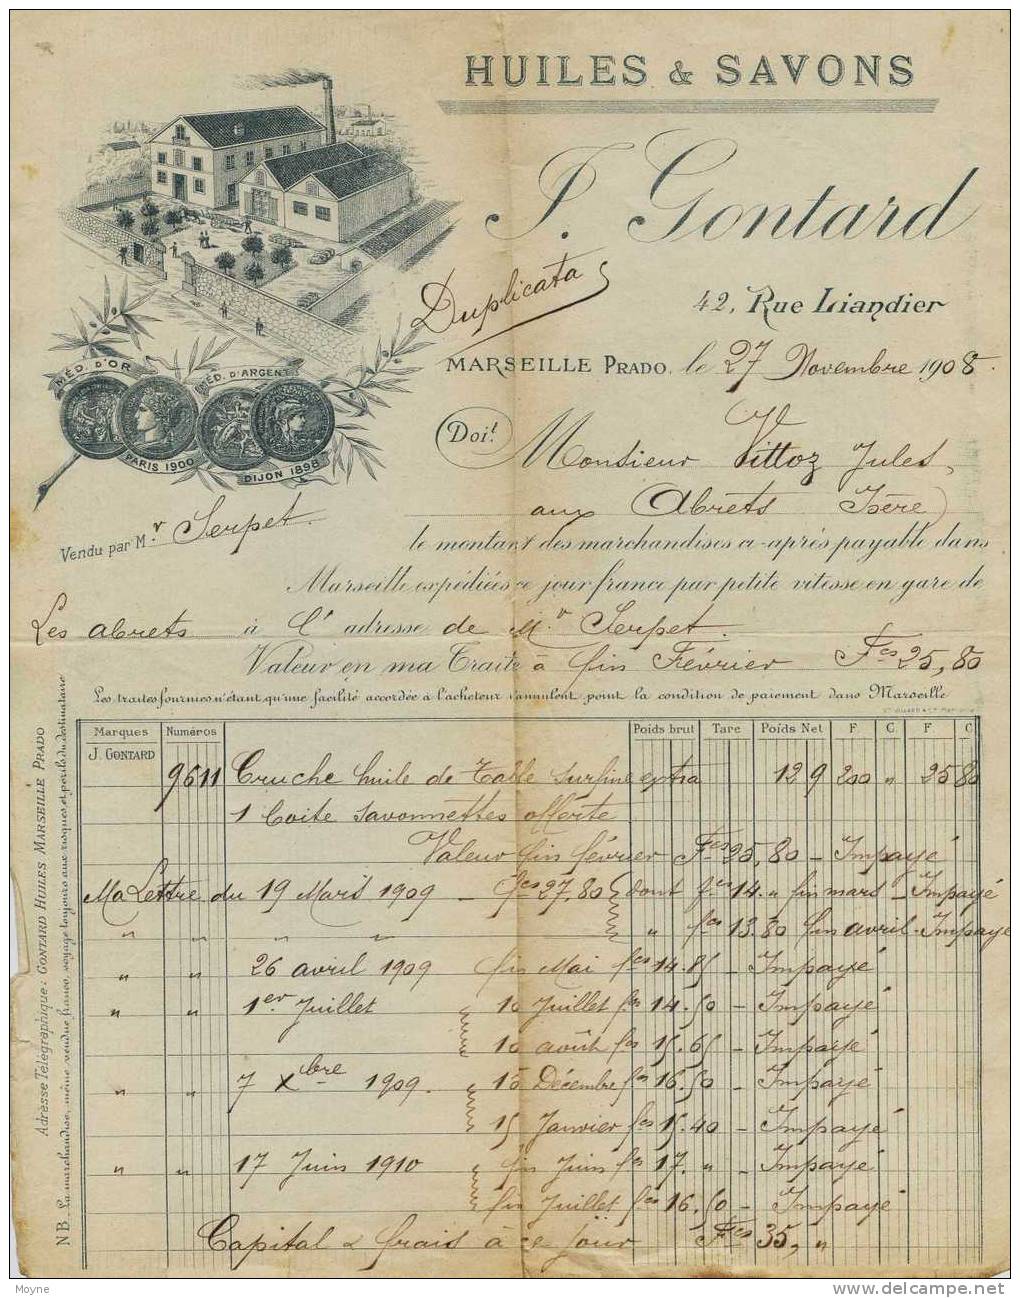 HUILES & SAVONS
J. Gontard
42, Rue Liandier
Duplicata
MARSEILLE PRADO, le 27 Novembre 1908.
MÉD. D'OR
MÉD. D'ARGENT
PARIS 1900
DIJON 1898
Doit
Monsieur Vittoz Jules,
aux Abrets Isère)
Vendu par Mr. Serpet.
le montant des marchandises ci-après payable dans
Marseille expédiées ce jour franco par petite vitesse en gare de
Les abrets à l'adresse de Mr Serpet.
Valeur en ma Traite à fin Février Fcs 25,80
Les traites fournies n'étant qu'une facilité accordée à l'acheteur n'annulent point la condition de paiement dans Marseille
Marques Numéros Poids brut Tare Poids Net F C F C
J. GONTARD
9611 Cruche huile de Table surfine extra 12 9 200 " 25 80
1 boite savonnettes offerte
Valeur fin février Fcs 25,80 - Impayé
Ma Lettre du 19 Mars 1909 - fcs 27,80 dont fcs 14 " fin mars - Impayé
" " " " " fcs 13.80 fin avril - Impayé
" " 26 avril 1909 fin Mai fcs 14.85 - Impayé
" " 1er Juillet 10 Juillet fcs 14.50 - Impayé
10 août fcs 15.65 - Impayé
" " 7 Xbre 1909. 15 Décembre fcs 16.50 - Impayé
15 Janvier fcs 15.40 - Impayé
" " 17 Juin 1910 fin Juin fcs 17. " - Impayé
fin Juillet fcs 16.50 - Impayé
Capital & frais à ce jour Fcs 35, "
Adresse Télégraphique: GONTARD HUILES MARSEILLE PRADO
NB. La marchandise, même vendue franco, voyage toujours aux risques et périls du destinataire
Moyne
delcampe.net